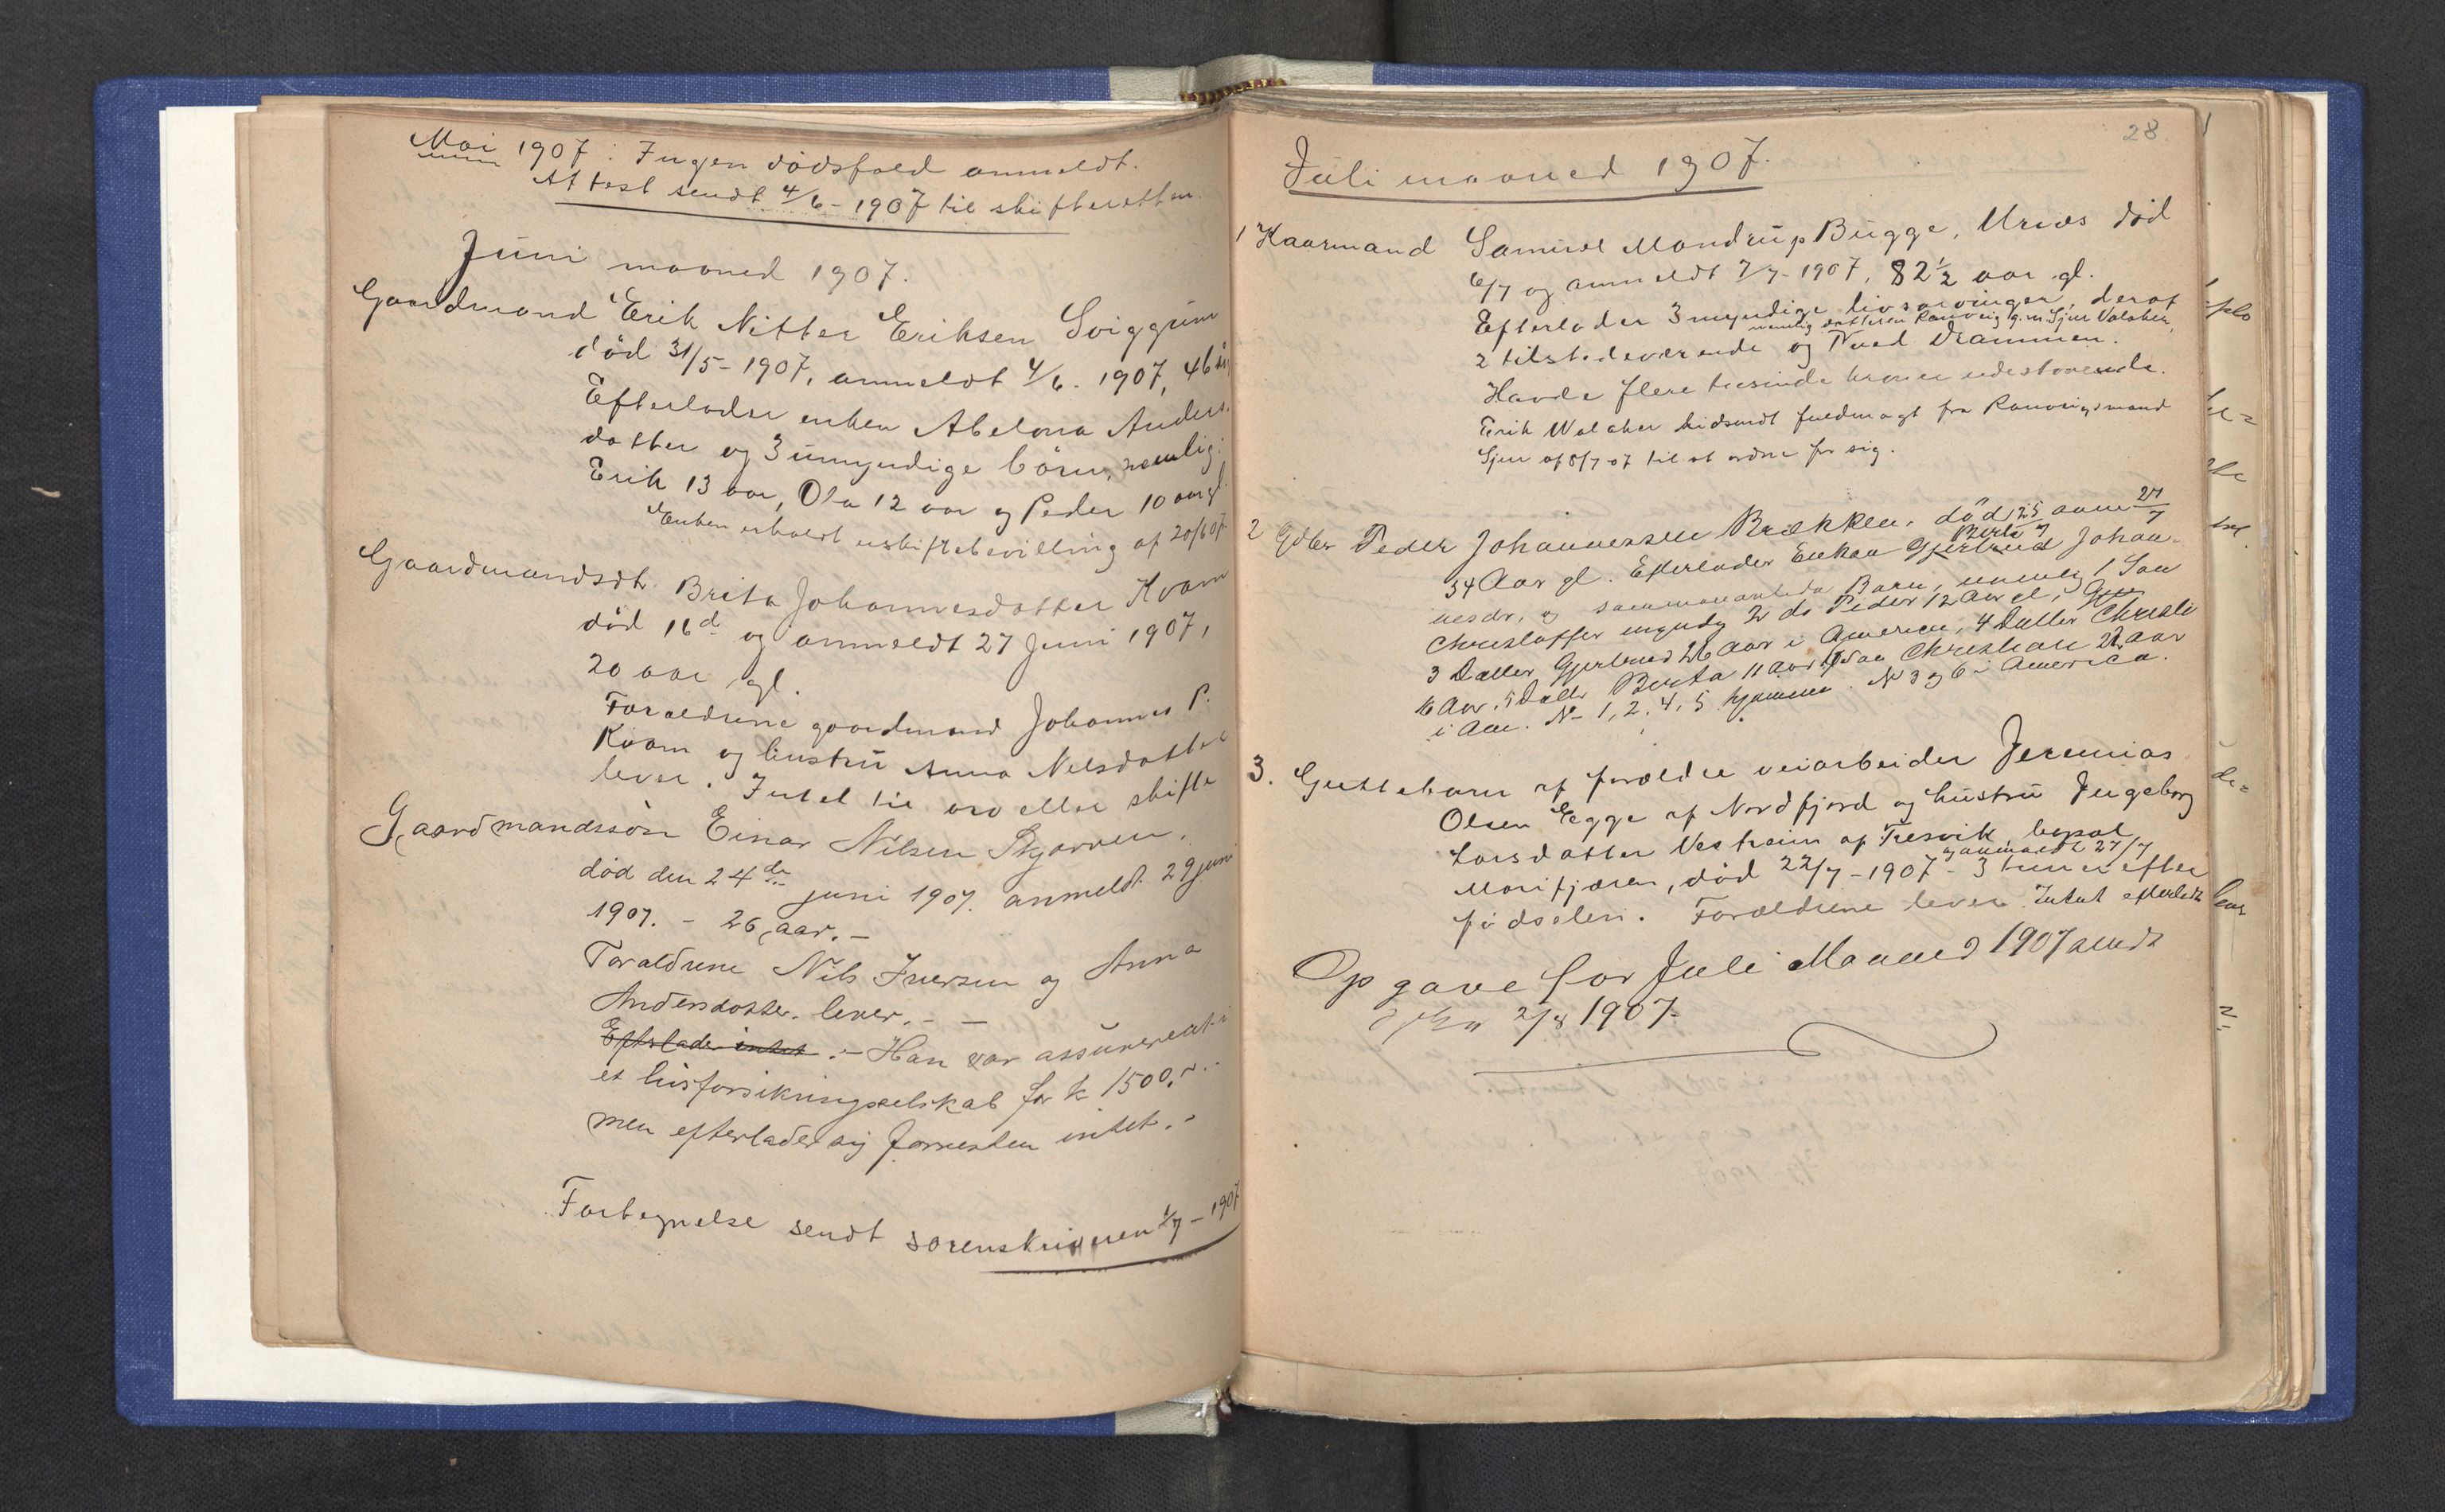 Mai 1907: Ingen dödsfald anmeldt.
Attest sendt 4/6-1907 til skifteretten.
Juni maaned 1907.
Gaardmand Erik Nitter Eriksen Sviggum
död 31/5-1907, anmeldt 4/6-1907, 46 år,
Efterlader enken Abelona Anders-
datter og 3 umyndige börn, nemlig:
Erik 13 aar, Ola 12 aar og Peder 10 aar gl.
Enken erholdt uskiftebevilling af 20/6 07.
Gaardmandsdt. Brita Johannesdatter Kvam
död 16d og anmeldt 27 Juni 1907,
20 aar gl.
Foraeldrene gaardmand Johannes P.
Kvam og hustru Anna Nilsdatter
lever. Intet til arv eller skifte
Gaardmandssön Einar Nilsen
död den 24de juni 1907. anmeldt 29 juni
1907. - 26 aar. -
Foraldrene Nils Iversen og Anna
Andersdotter lever. - -
Efterlader intet. - Han var assurereret i
et livsforsikringsselskab for k 1500,
men efterlader sig forresten intet. -
Fortegnelse sendt sorenskriveren 1/7-1907
28
Juli maaned 1907.
1 Kaarmand Samuel Mandrup Bugge, Urnes död
6/7 og anmeldt 7/7-1907, 82 1/2 aar gl.
Efterlader 3 myndige livsarvinger, deraf
nemlig datteren Ranveig g.m. Sjur Valaker,
2 tilstedeværende og 1 ved Drammen.
Havde flere tusinde kroner udestaaende.
Erik Walaker hidsendt fuldmagt fra Ranveigs mand
Sjur af 8/7 07 til at ordne for sig.
2 Gdbr Peder Johannessen Brækken, död 25 anm 27/7
Berta
54 Aar gl. Efterlader Enken Gjertrud Johan-
nesdr, og sammenavlede Barn, nemlig 1 Søn
Christoffer myndig 2 do Peder 12 Aar gl,
3 Datter Gjertrud 26 Aar i America, 4 Datter Christi
16 Aar, 5 Datter Berta 11 aar 6 Søn Christian 22 aar
i Am. No 1, 2, 4, 5 hjemme. No 3 og 6 i America.
3. Guttebarn af foraeldre veiarbeider Jeremias
Olsen Egge af Nordfjord og hustru Ingeborg
Larsdatter Vestreim af Fresvik, bopæl
og anmeldt 27/7
Marifjæren, död 22/7-1907 - 3 timer efter
födselen. Foraeldrene lever. Intet efterladt
Opgave for Juli Maaned 1907 sendt
2/8 1907.